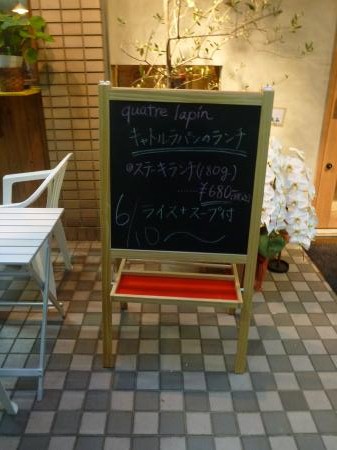 quatre lapin
キャトルラパンのランチ
ステーキランチ(180g)
¥680
ライス+スープ付
6/10〜